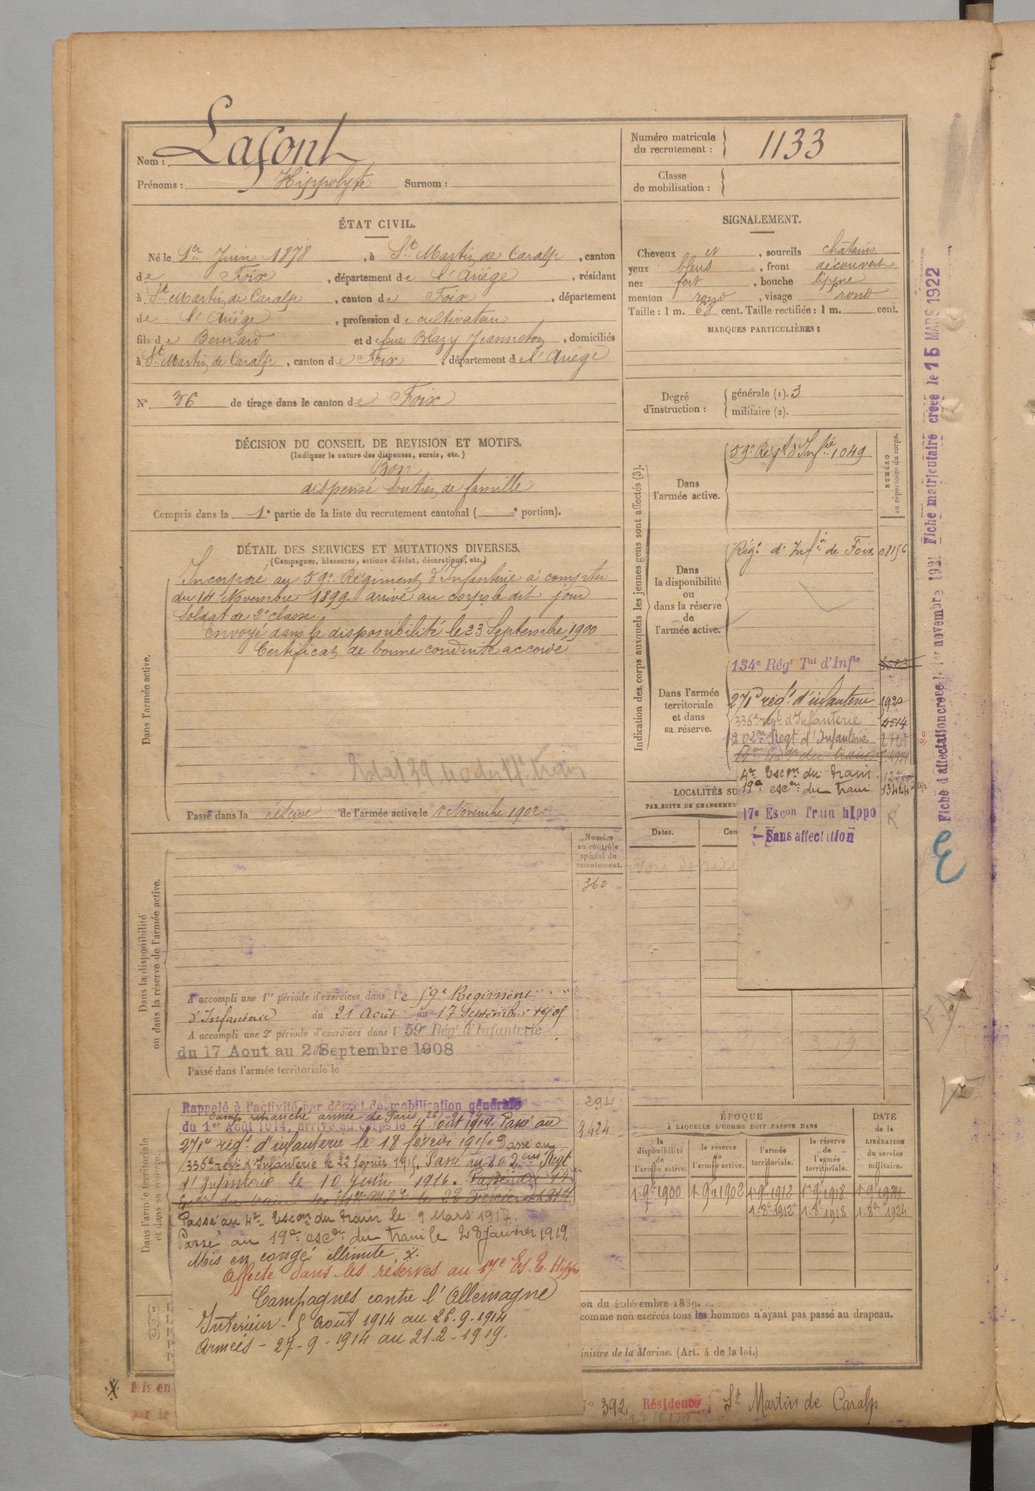 Nom : Lafont
Prénoms : Hippolyte Surnom :
Numéro matricule du recrutement : 1133
Classe de mobilisation :
ÉTAT CIVIL.
Né le 1er Juin 1878, à St Martin de Caralp, canton
de Foix, département de l'Ariège, résidant
à St Martin de Caralp, canton de Foix, département
de l'Ariège, profession de cultivateur
fils de Bernard et de feue Blazy Jeanneton, domiciliés
à St Martin de Caralp, canton de Foix, département de l'Ariège
N° 36 de tirage dans le canton de Foix
SIGNALEMENT.
Cheveux et, sourcils chatains
yeux bleus, front découvert
nez fort, bouche moyenne
menton rond, visage rond
Taille : 1 m. 63 cent. Taille rectifiée : 1 m. cent.
MARQUES PARTICULIÈRES :
Degré d'instruction : générale (1). 3
militaire (2).
DÉCISION DU CONSEIL DE REVISION ET MOTIFS.
(Indiquer la nature des dispenses, sursis, etc.)
Bon
dispensé soutien de famille
Compris dans la 1e partie de la liste du recrutement cantonal ( e portion).
DÉTAIL DES SERVICES ET MUTATIONS DIVERSES.
(Campagnes, blessures, actions d'éclat, décorations, etc.)
Dans l'armée active.
Incorporé au 59e Régiment d'Infanterie à compter
du 14 Novembre 1899 arrivé au corps à dit jour
soldat de 2e classe
Envoyé dans la disponibilité le 23 Septembre 1900
Certificat de bonne conduite accordé
Passé dans la réserve de l'armée active le 1er Novembre 1902
Indication des corps auxquels les jeunes gens sont affectés (3).
NUMÉRO au répertoire du corps.
Dans l'armée active.
59e Régt d'Infrie 1049
Dans la disponibilité ou dans la réserve de l'armée active.
Régt d'Infie de Foix 08156
Dans l'armée territoriale et dans sa réserve.
134e Régt Tal d'Infie
271e regt d'infanterie 1920
336e regt d'Infanterie 4514
202me Regt d'Infanterie
4e Escon du train
19e escon du train 13424
17e Escon Train hippo
Sans affectation
LOCALITÉS SU
PAR SUITE DE CHANGEMEN
Dates.
Dans la disponibilité ou dans la réserve de l'armée active.
Numéro au contrôle spécial du recrutement.
360
A accompli une 1re période d'exercices dans le 59e Régiment
d'Infanterie du 21 Août au 17 Septembre 1905
A accompli une 2e période d'exercices dans l 59e Régt d'Infanterie
du 17 Aout au 2 Septembre 1908
Passé dans l'armée territoriale le
Dans l'armée territoriale et dans sa réserve.
294
3424
Rappelé à l'activité par décret de mobilisation générale
Camp retranché armée de Paris
du 1er Août 1914, arrivé au corps le 4 août 1914. Passé au
271e régt d'infanterie le 18 février 1915. Passé au
336e regt d'Infanterie le 22 février 1915. Passé au 202me Regt
d'Infanterie le 10 Juin 1916.
Passé au 4e Escon du train le 9 Mars 1917
Passé au 19e escon du train le 28 Janvier 1919.
Mis en congé illimité. X.
Affecté dans les réserves au 17e Es. T. Hippo
Campagnes contre l'Allemagne
Intérieur - 5 Août 1914 au 26-9-1914
Armées - 27-9-1914 au 21-2-1919.
ÉPOQUE
À LAQUELLE L'HOMME DOIT PASSER DANS
la disponibilité de l'armée active.
la réserve de l'armée active.
l'armée territoriale.
la réserve de l'armée territoriale.
DATE de la LIBÉRATION du service militaire.
1-9bre 1900 1-9bre 1902 1-9bre 1912 1-9bre 1918 1-9bre 1924
1-8bre 1912 1-8bre 1918 1-8bre 1924
on du 4 décembre 1889.
comme non exercés tous les hommes n'ayant pas passé au drapeau.
inistre de la Marine. (Art. 4 de la loi.)
X Mis en
N° 392 Résidence St Martin de Caralp
Fiche d'affectation créée le 1er novembre 1921 Fiche matriculaire créée le 15 MARS 1922